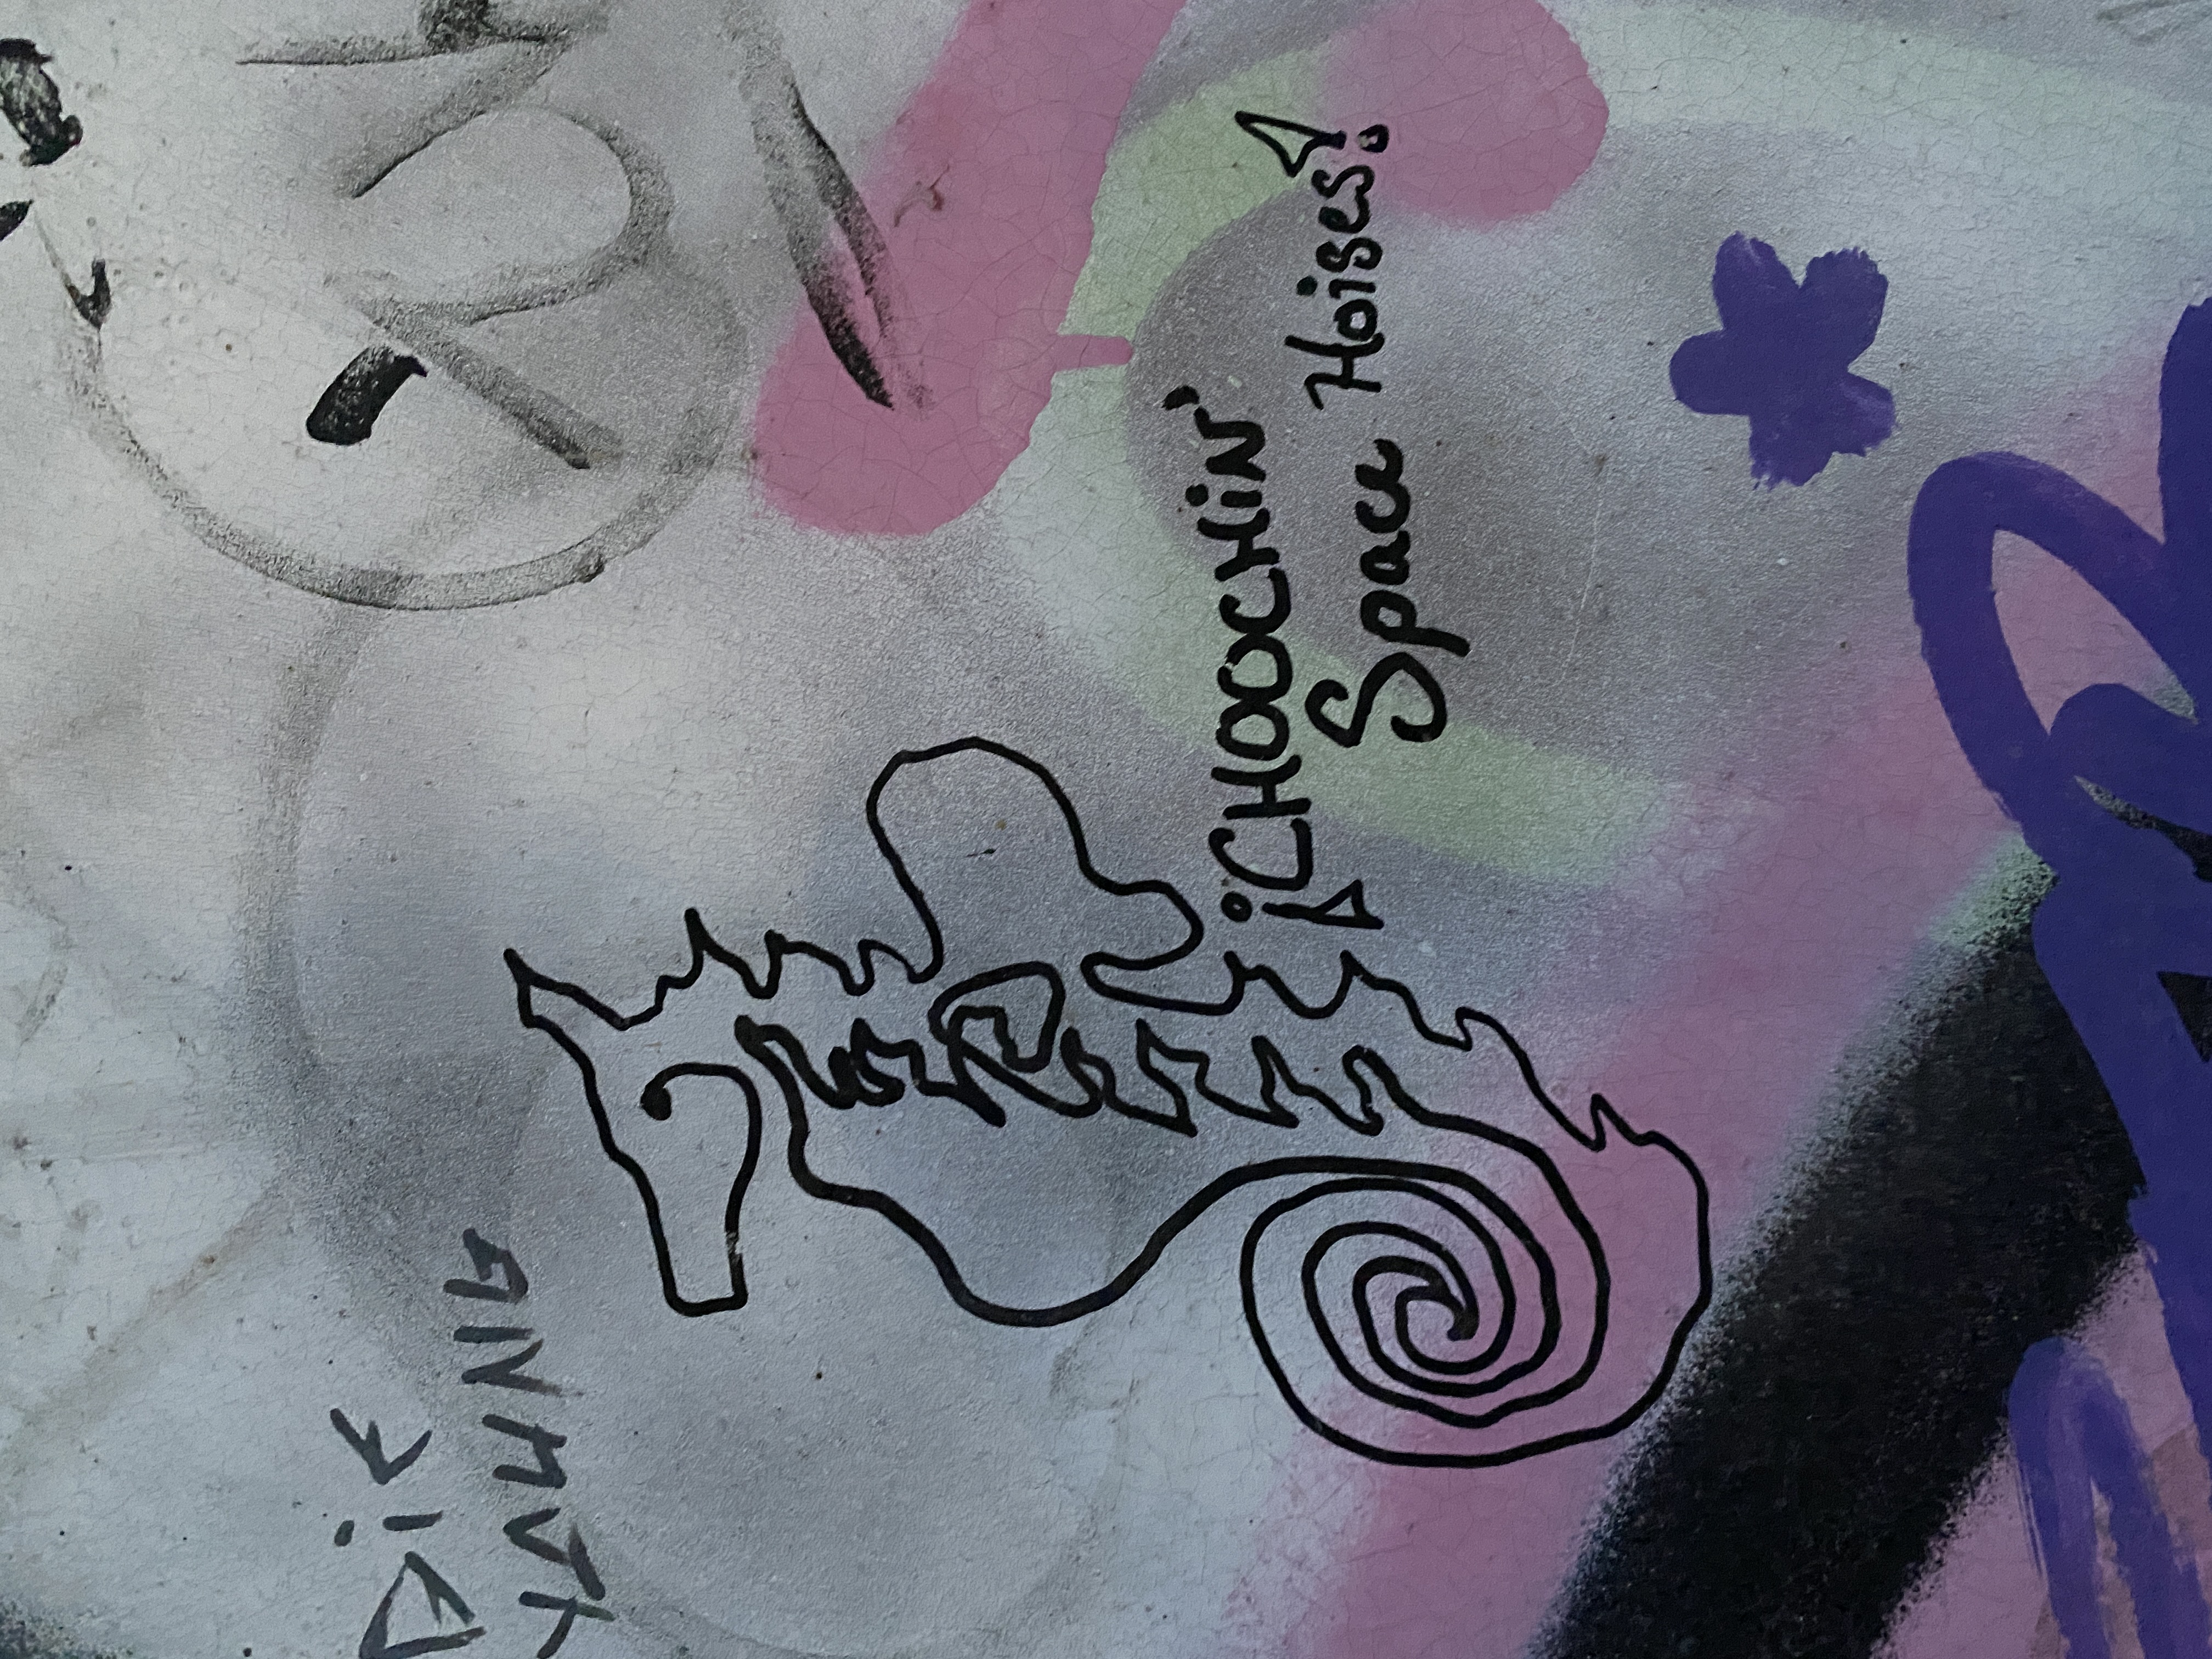 DiE
YOUNG
¡CHOOCHiN'
Space Hoises!